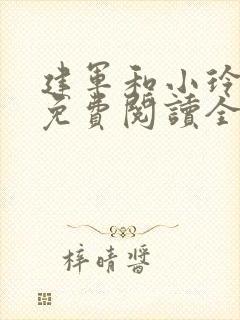 建军和小玲
免費閱讀全
梓晴醬